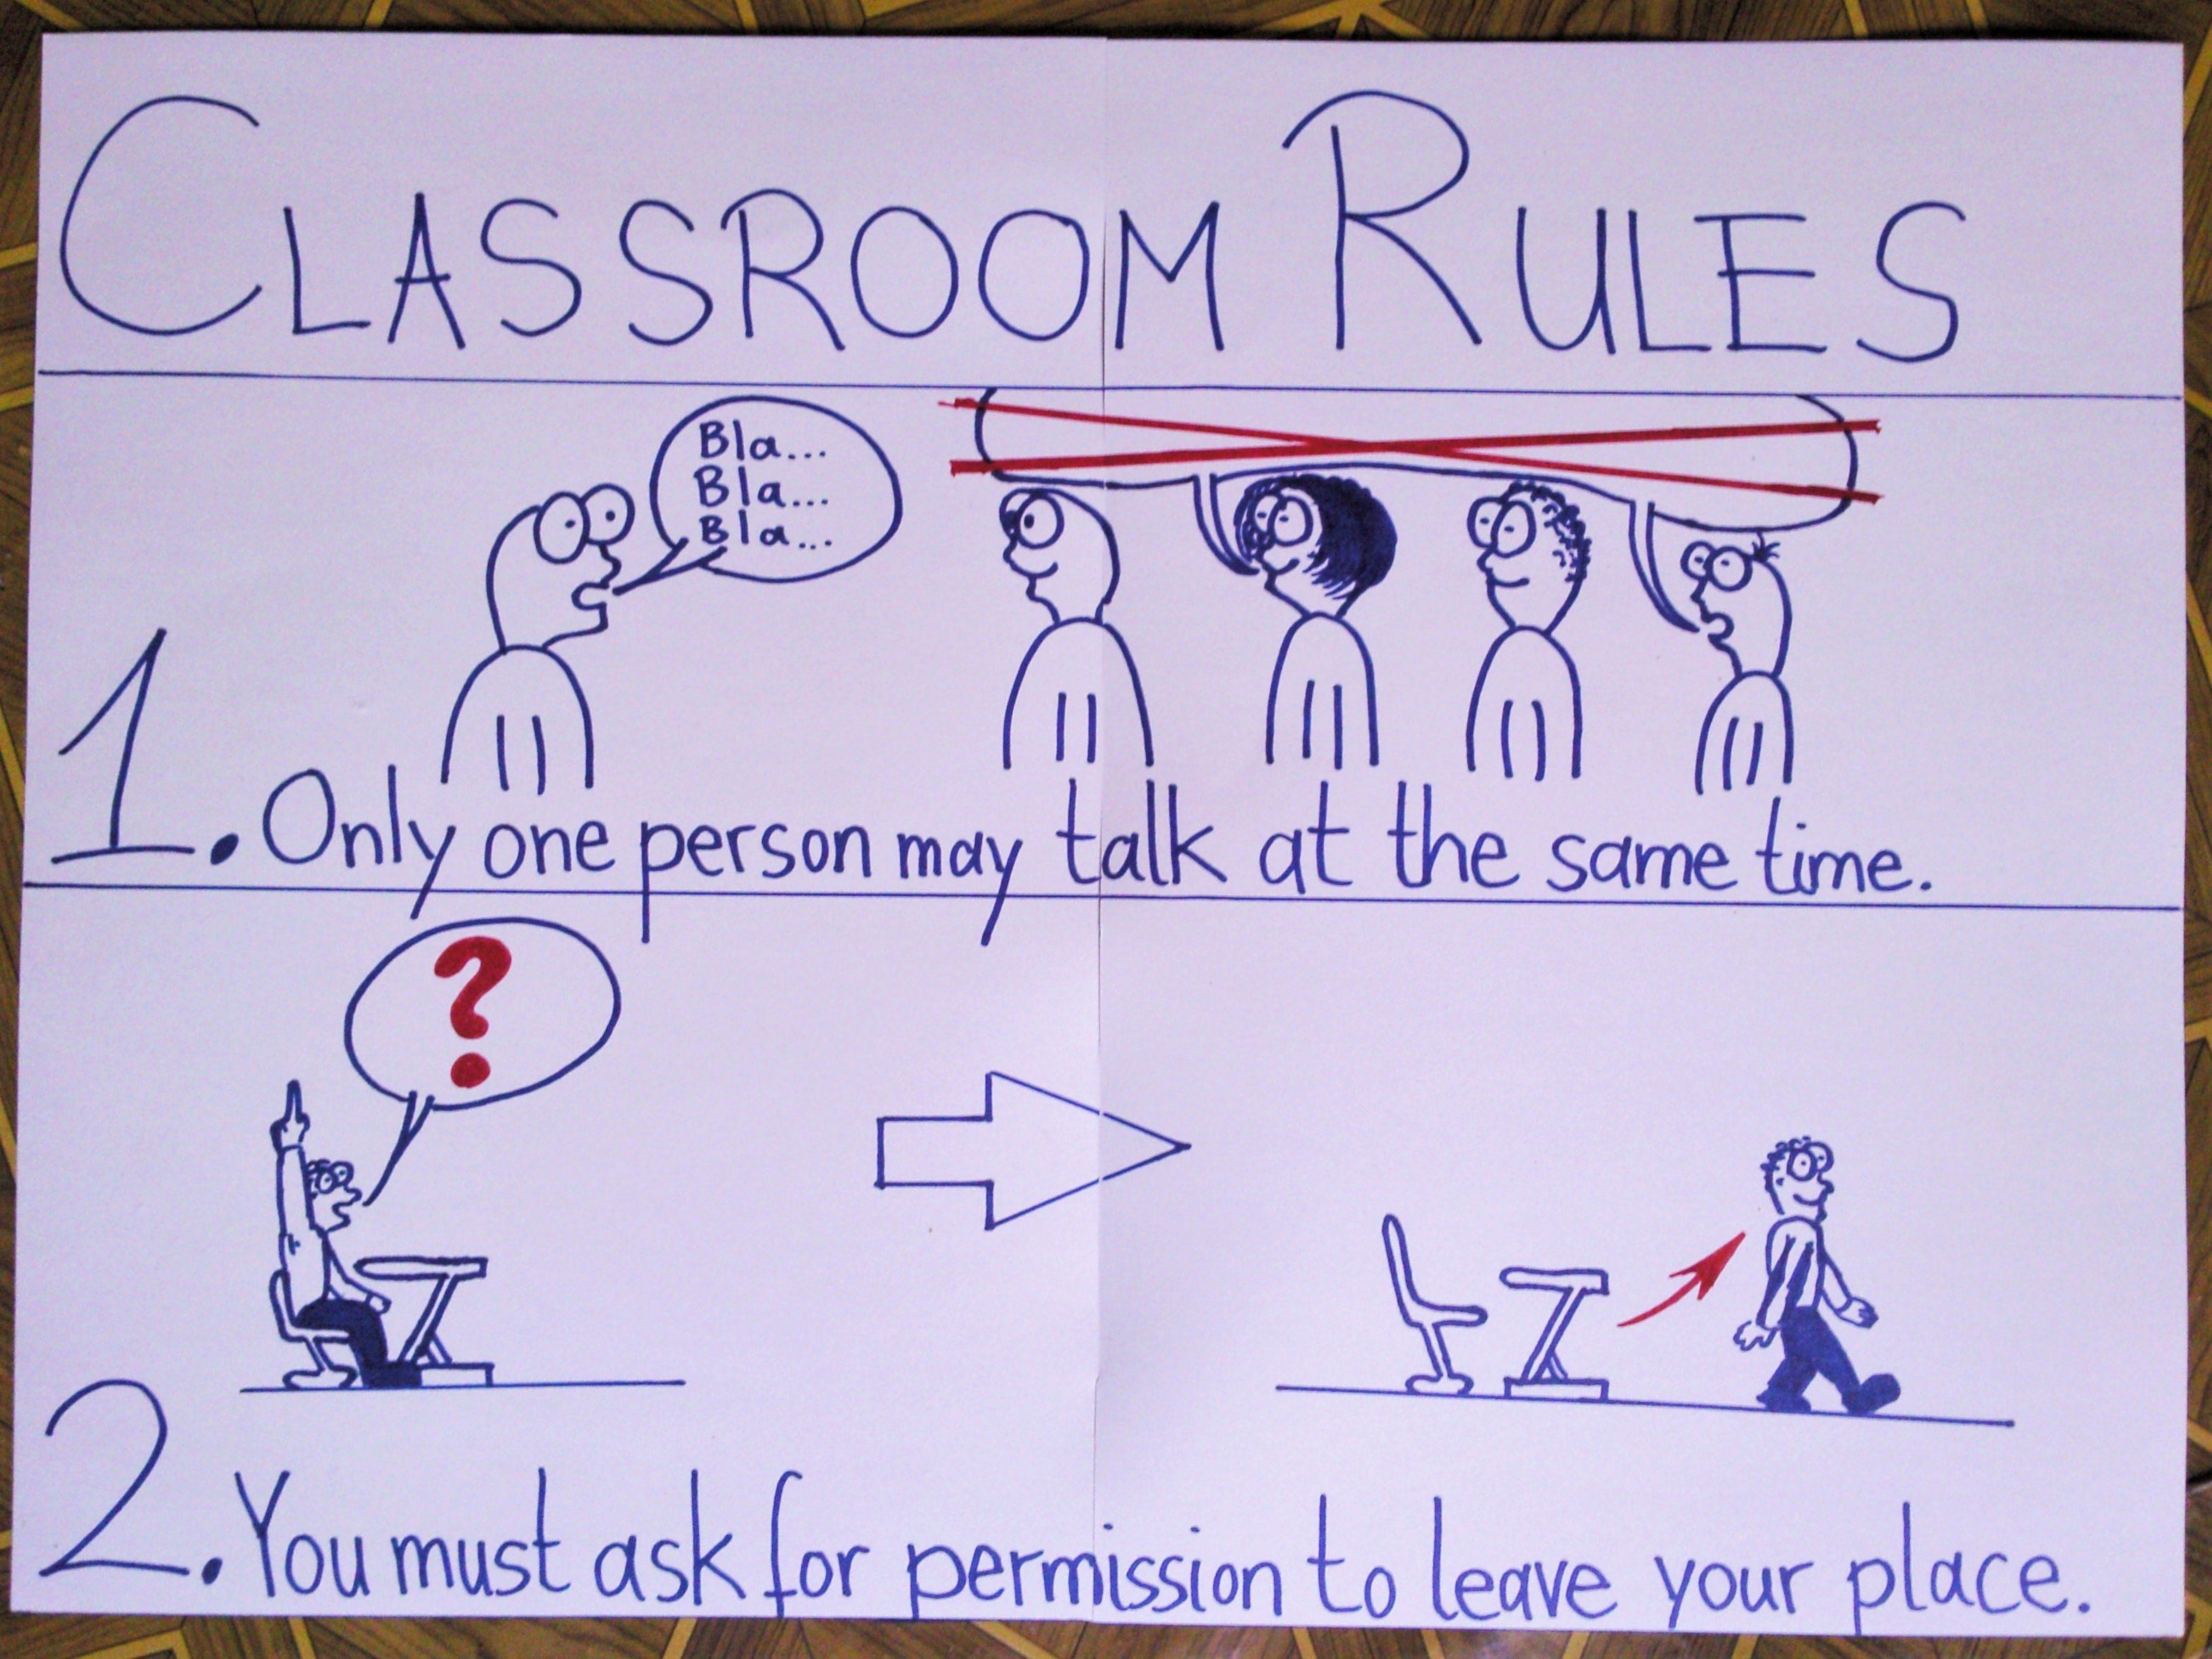 CLASSROOM RULES
Bla...
Bla...
Bla...
1. Only one person may talk at the same time.
?
2. You must ask for permission to leave your place.